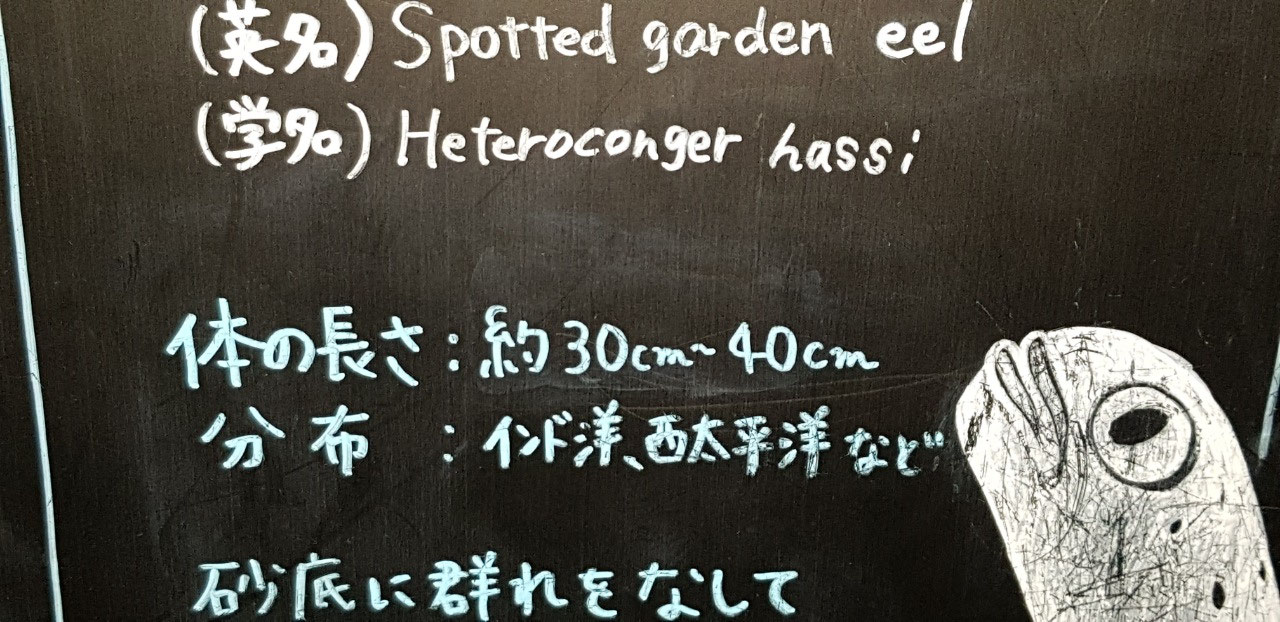 (英名) Spotted garden eel
(学名) Heteroconger hassi
体の長さ：約30cm~40cm
分布：インド洋、西太平洋など
砂底に群れをなして